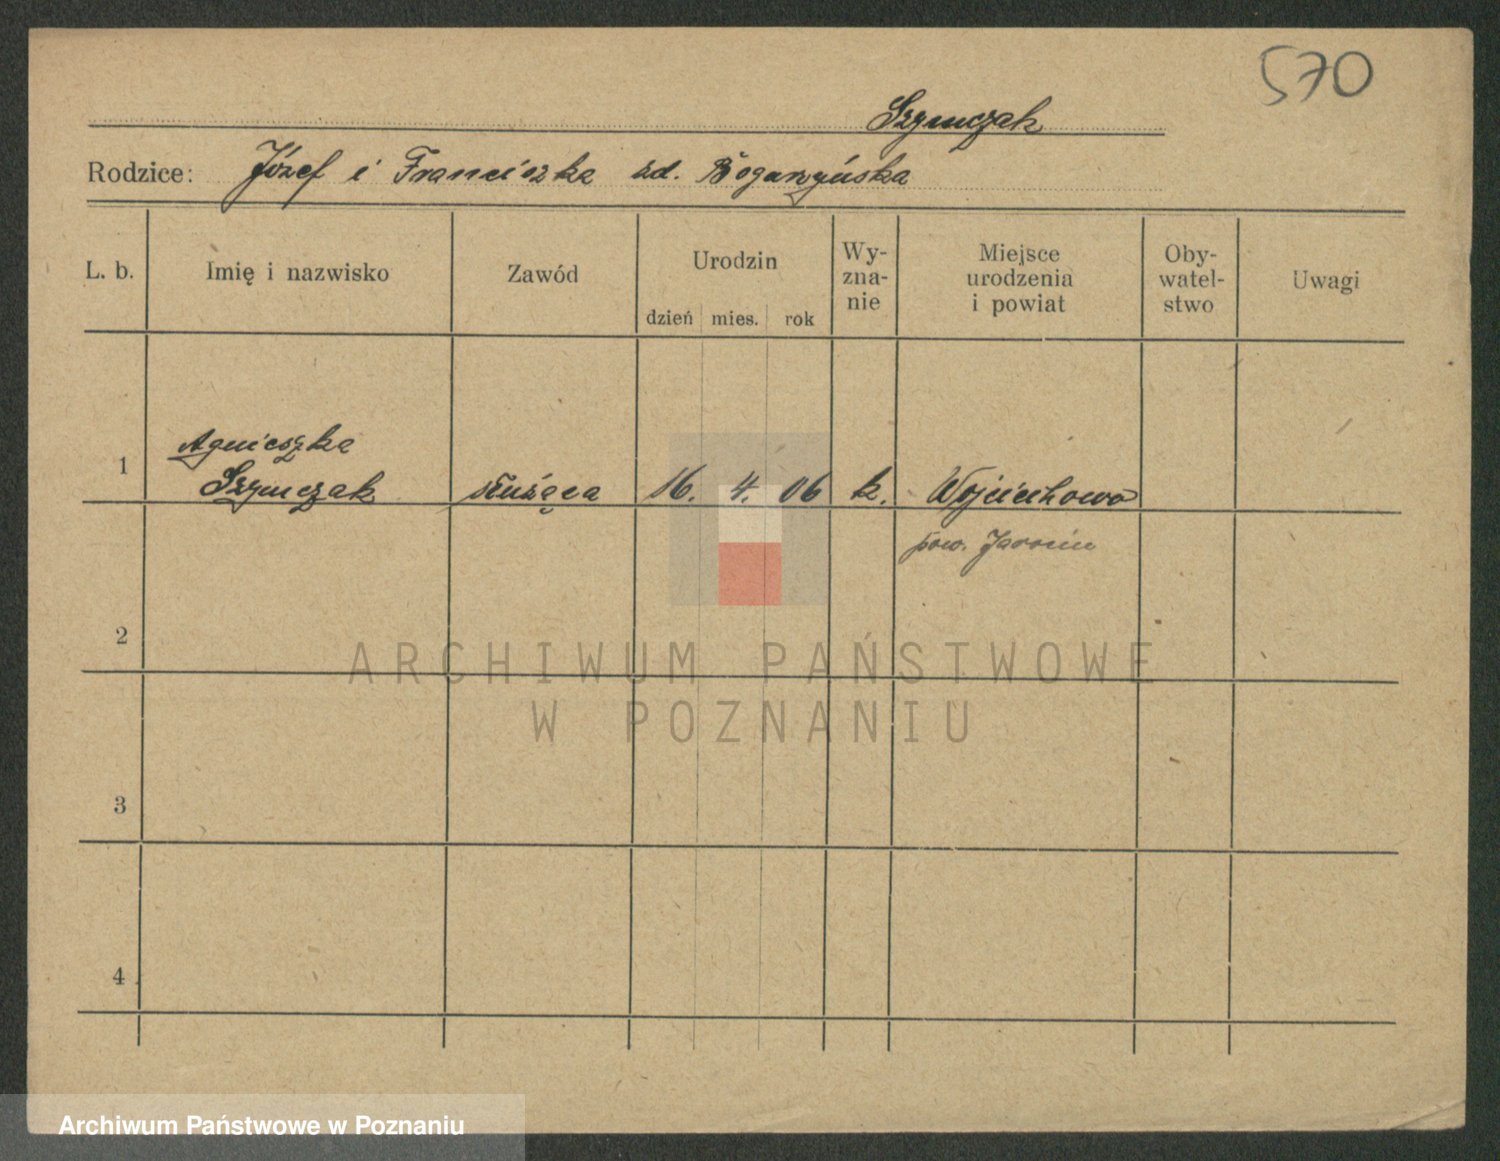 570
Szymczak
Rodzice: Józef i Franciszka zd.
L. b. Imię i nazwisko Zawód Urodzin dzień mies. rok Wy-zna-nie Miejsce urodzenia i powiat Oby-watel-stwo Uwagi
Agnieszka
1 Szymczak służąca 16. 4. 06 k. Wojciechowo
pow. Jarocin
2
ARCHIWUM PAŃSTWOWE
W POZNANIU
3
4
Archiwum Państwowe w Poznaniu